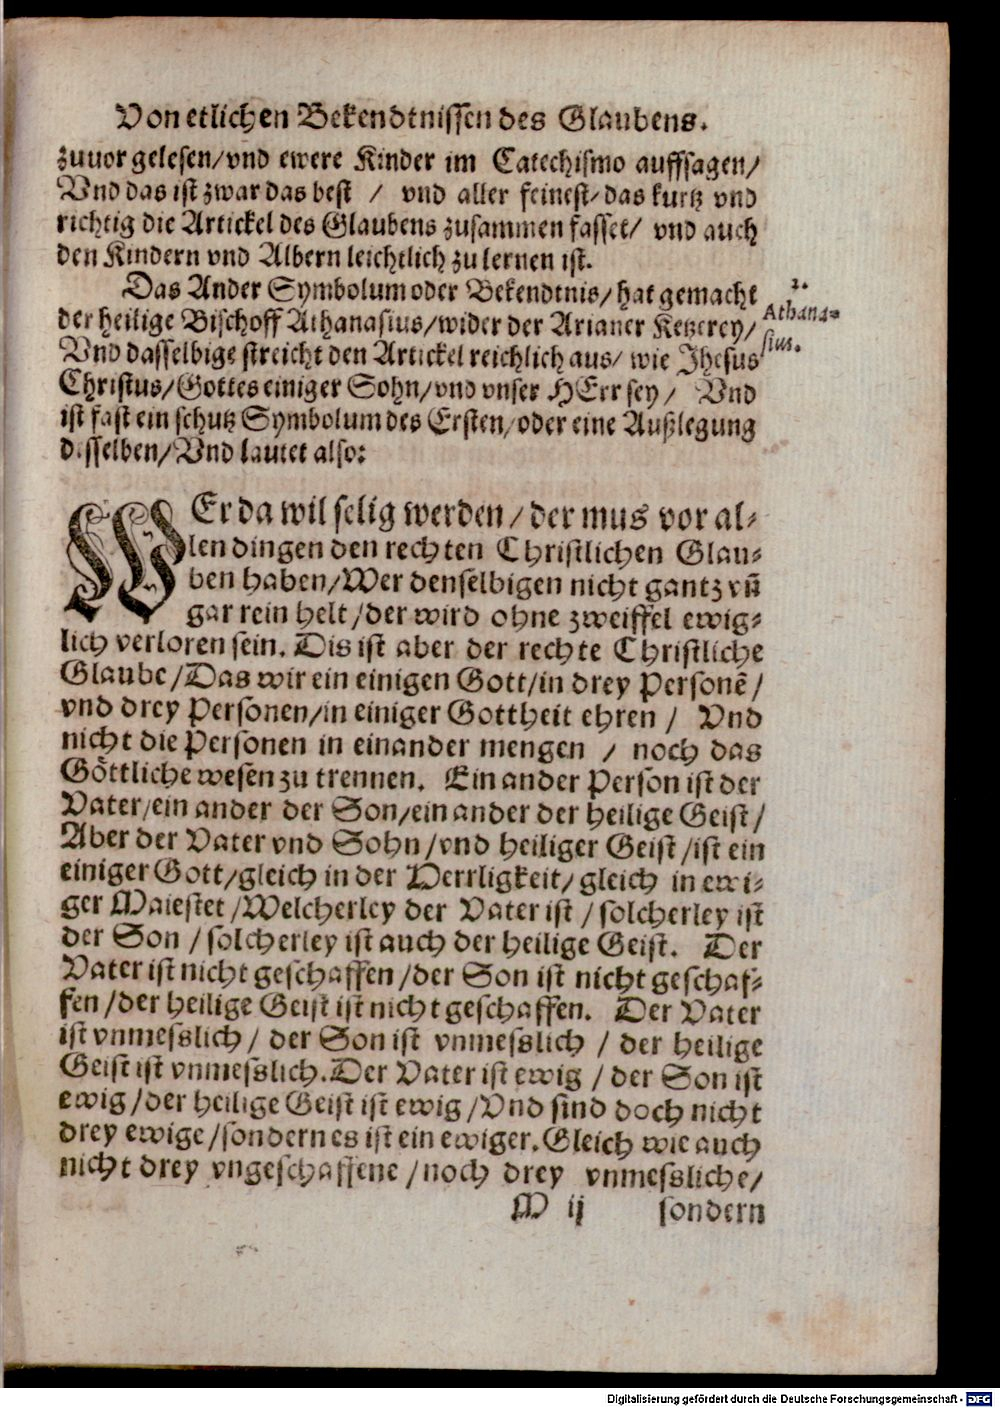 Von etlichen Bekendtnissen des Glaubens.
zuuor gelesen/vnd ewere Kinder im Catechismo auffsagen/
Vnd das ist zwar das best / vnd aller feinest/das kurtz vnd
richtig die Artickel des Glaubens zusammen fasset/ vnd auch
den Kindern vnd Albern leichtlich zu lernen ist.
Das Ander Symbolum oder Bekendtnis/hat gemacht
der heilige Bischoff Athanasius/wider der Arianer Ketzerey/
Vnd dasselbige streicht den Artickel reichlich aus/ wie Jhesus
Christus/Gottes einiger Sohn/vnd vnser HErr sey/ Vnd
ist fast ein schutz Symbolum des Ersten/oder eine Außlegung
desselben/Vnd lautet also:
2.
Athana=
sius.
WEr da wil selig werden/der mus vor al=
len dingen den rechten Christlichen Glau=
ben haben/Wer denselbigen nicht gantz vñ
gar rein helt/der wird ohne zweiffel ewig=
lich verloren sein. Dis ist aber der rechte Christliche
Glaube/Das wir ein einigen Gott/in drey Personẽ/
vnd drey Personen/in einiger Gottheit ehren/ Vnd
nicht die Personen in einander mengen / noch das
Göttliche wesen zu trennen. Ein ander Person ist der
Vater/ein ander der Son/ein ander der heilige Geist/
Aber der Vater vnd Sohn/vnd heiliger Geist/ist ein
einiger Gott/gleich in der Herrligkeit/gleich in ewi=
ger Maiestet/Welcherley der Vater ist/solcherley ist
der Son/solcherley ist auch der heilige Geist. Der
Vater ist nicht geschaffen/der Son ist nicht geschaf=
fen/der heilige Geist ist nicht geschaffen. Der Vater
ist vnmesslich/ der Son ist vnmesslich / der heilige
Geist ist vnmesslich. Der Vater ist ewig/der Son ist
ewig/der heilige Geist ist ewig/Vnd sind doch nicht
drey ewige/sondern es ist ein ewiger. Gleich wie auch
nicht drey vngeschaffene/noch drey vnmessliche/
M ij sondern
Digitalisierung gefördert durch die Deutsche Forschungsgemeinschaft - DFG